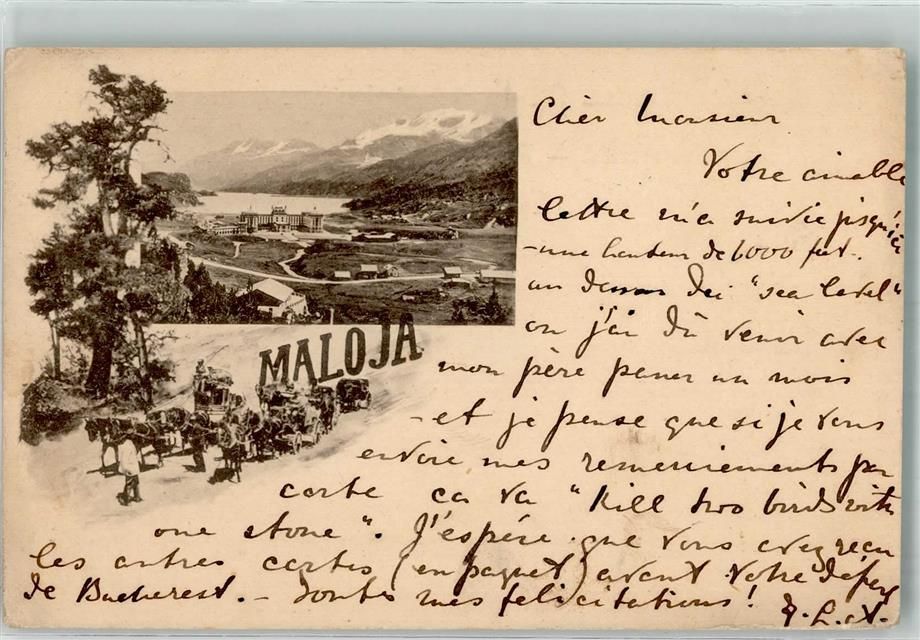 MALOJA
Cher Monsieur
Votre aimable
lettre m'a suivie jusqu'ici
- une hauteur de 6000 feet.
au dessus dei "sea level"
ou j'ai dû venir avec
mon père passer un mois
- et je pense que si je vous
envoie mes remerciements par
carte ça va "Kill two birds with
one stone". J'espère que vous avez reçu
les autres cartes (en paquet) avant votre départ
de Bucharest. - Toutes mes félicitations!